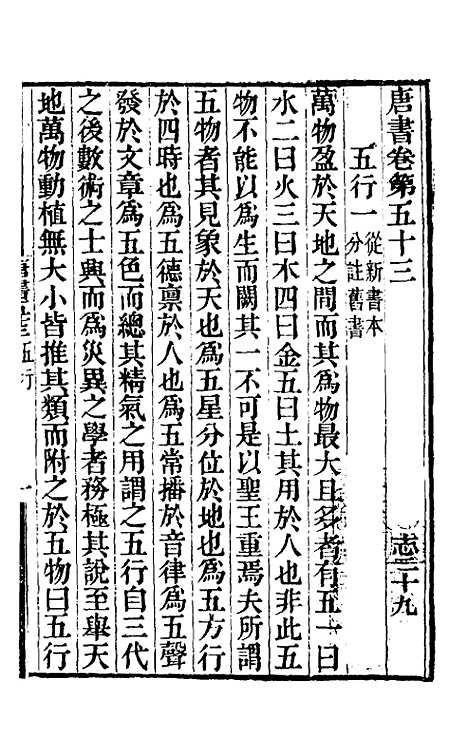 唐書卷第五十三　志二十九
五行一 從新書本分註舊書
萬物盈於天地之間而其爲物最大且多者有五一曰
水二曰火三曰木四曰金五曰土其用於人也非此五
物不能以爲生而闕其一不可是以聖王重焉夫所謂
五物者其見象於天也爲五星分位於地也爲五方行
於四時也爲五德禀於人也爲五常播於音律爲五聲
發於文章爲五色而總其精氣之用謂之五行自三代
之後數術之士興而爲災異之學者務極其說至舉天
地萬物動植無大小皆推其類而附之於五物曰五行